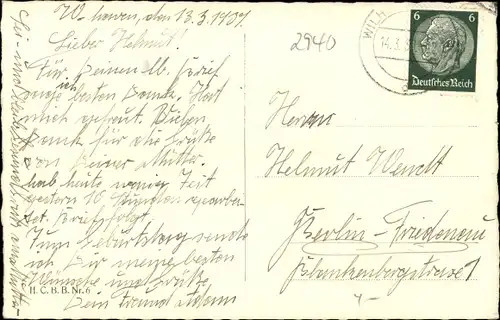 W-haven, den 13.3.1939.
Lieber Helmut!
Für Deinen lb. Brief
sage ich besten Dank. Hat
mich gefreut. Lieben
Dank für die Grüße
von Deiner Mutter.
hab heute wenig Zeit
gestern 16 Stunden gearbei-
tet. Brief folgt.
Zum Geburtstag sende
ich Dir meine besten
Wünsche und Grüße
Dein Freund
H. C. B. B. Nr. 6
2940
WILH
14.3.3
6 6
Deutsches Reich
Herrn
Helmut Wendt
Berlin-Friedenau
Blankenbergstrasse 1